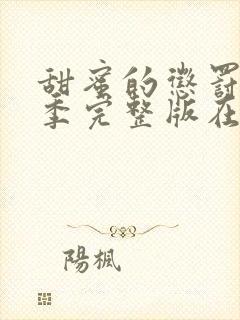 甜蜜的懲罰
季完整版在
陽楓